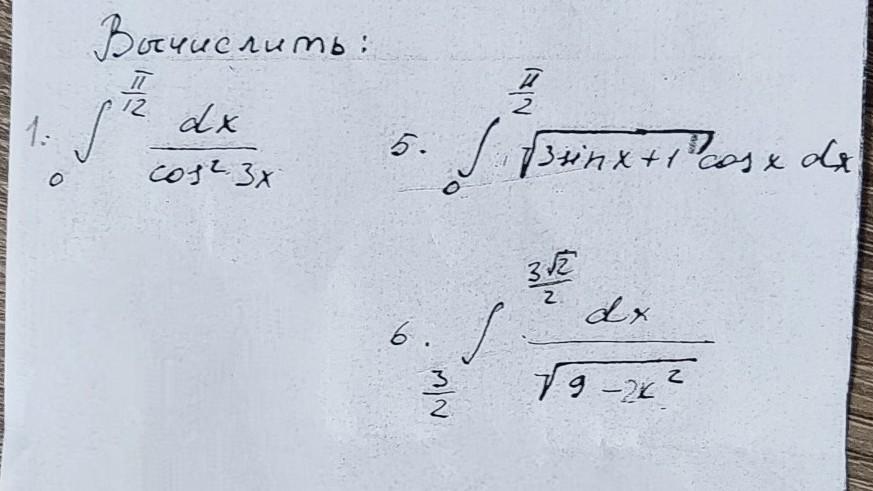 Вычислить:
1. ∫₀^(π/12) dx / cos² 3x
5. ∫₀^(π/2) √(3sinx+1) cosx dx
6. ∫_(3/2)^(3√2/2) dx / √(9-2x²)